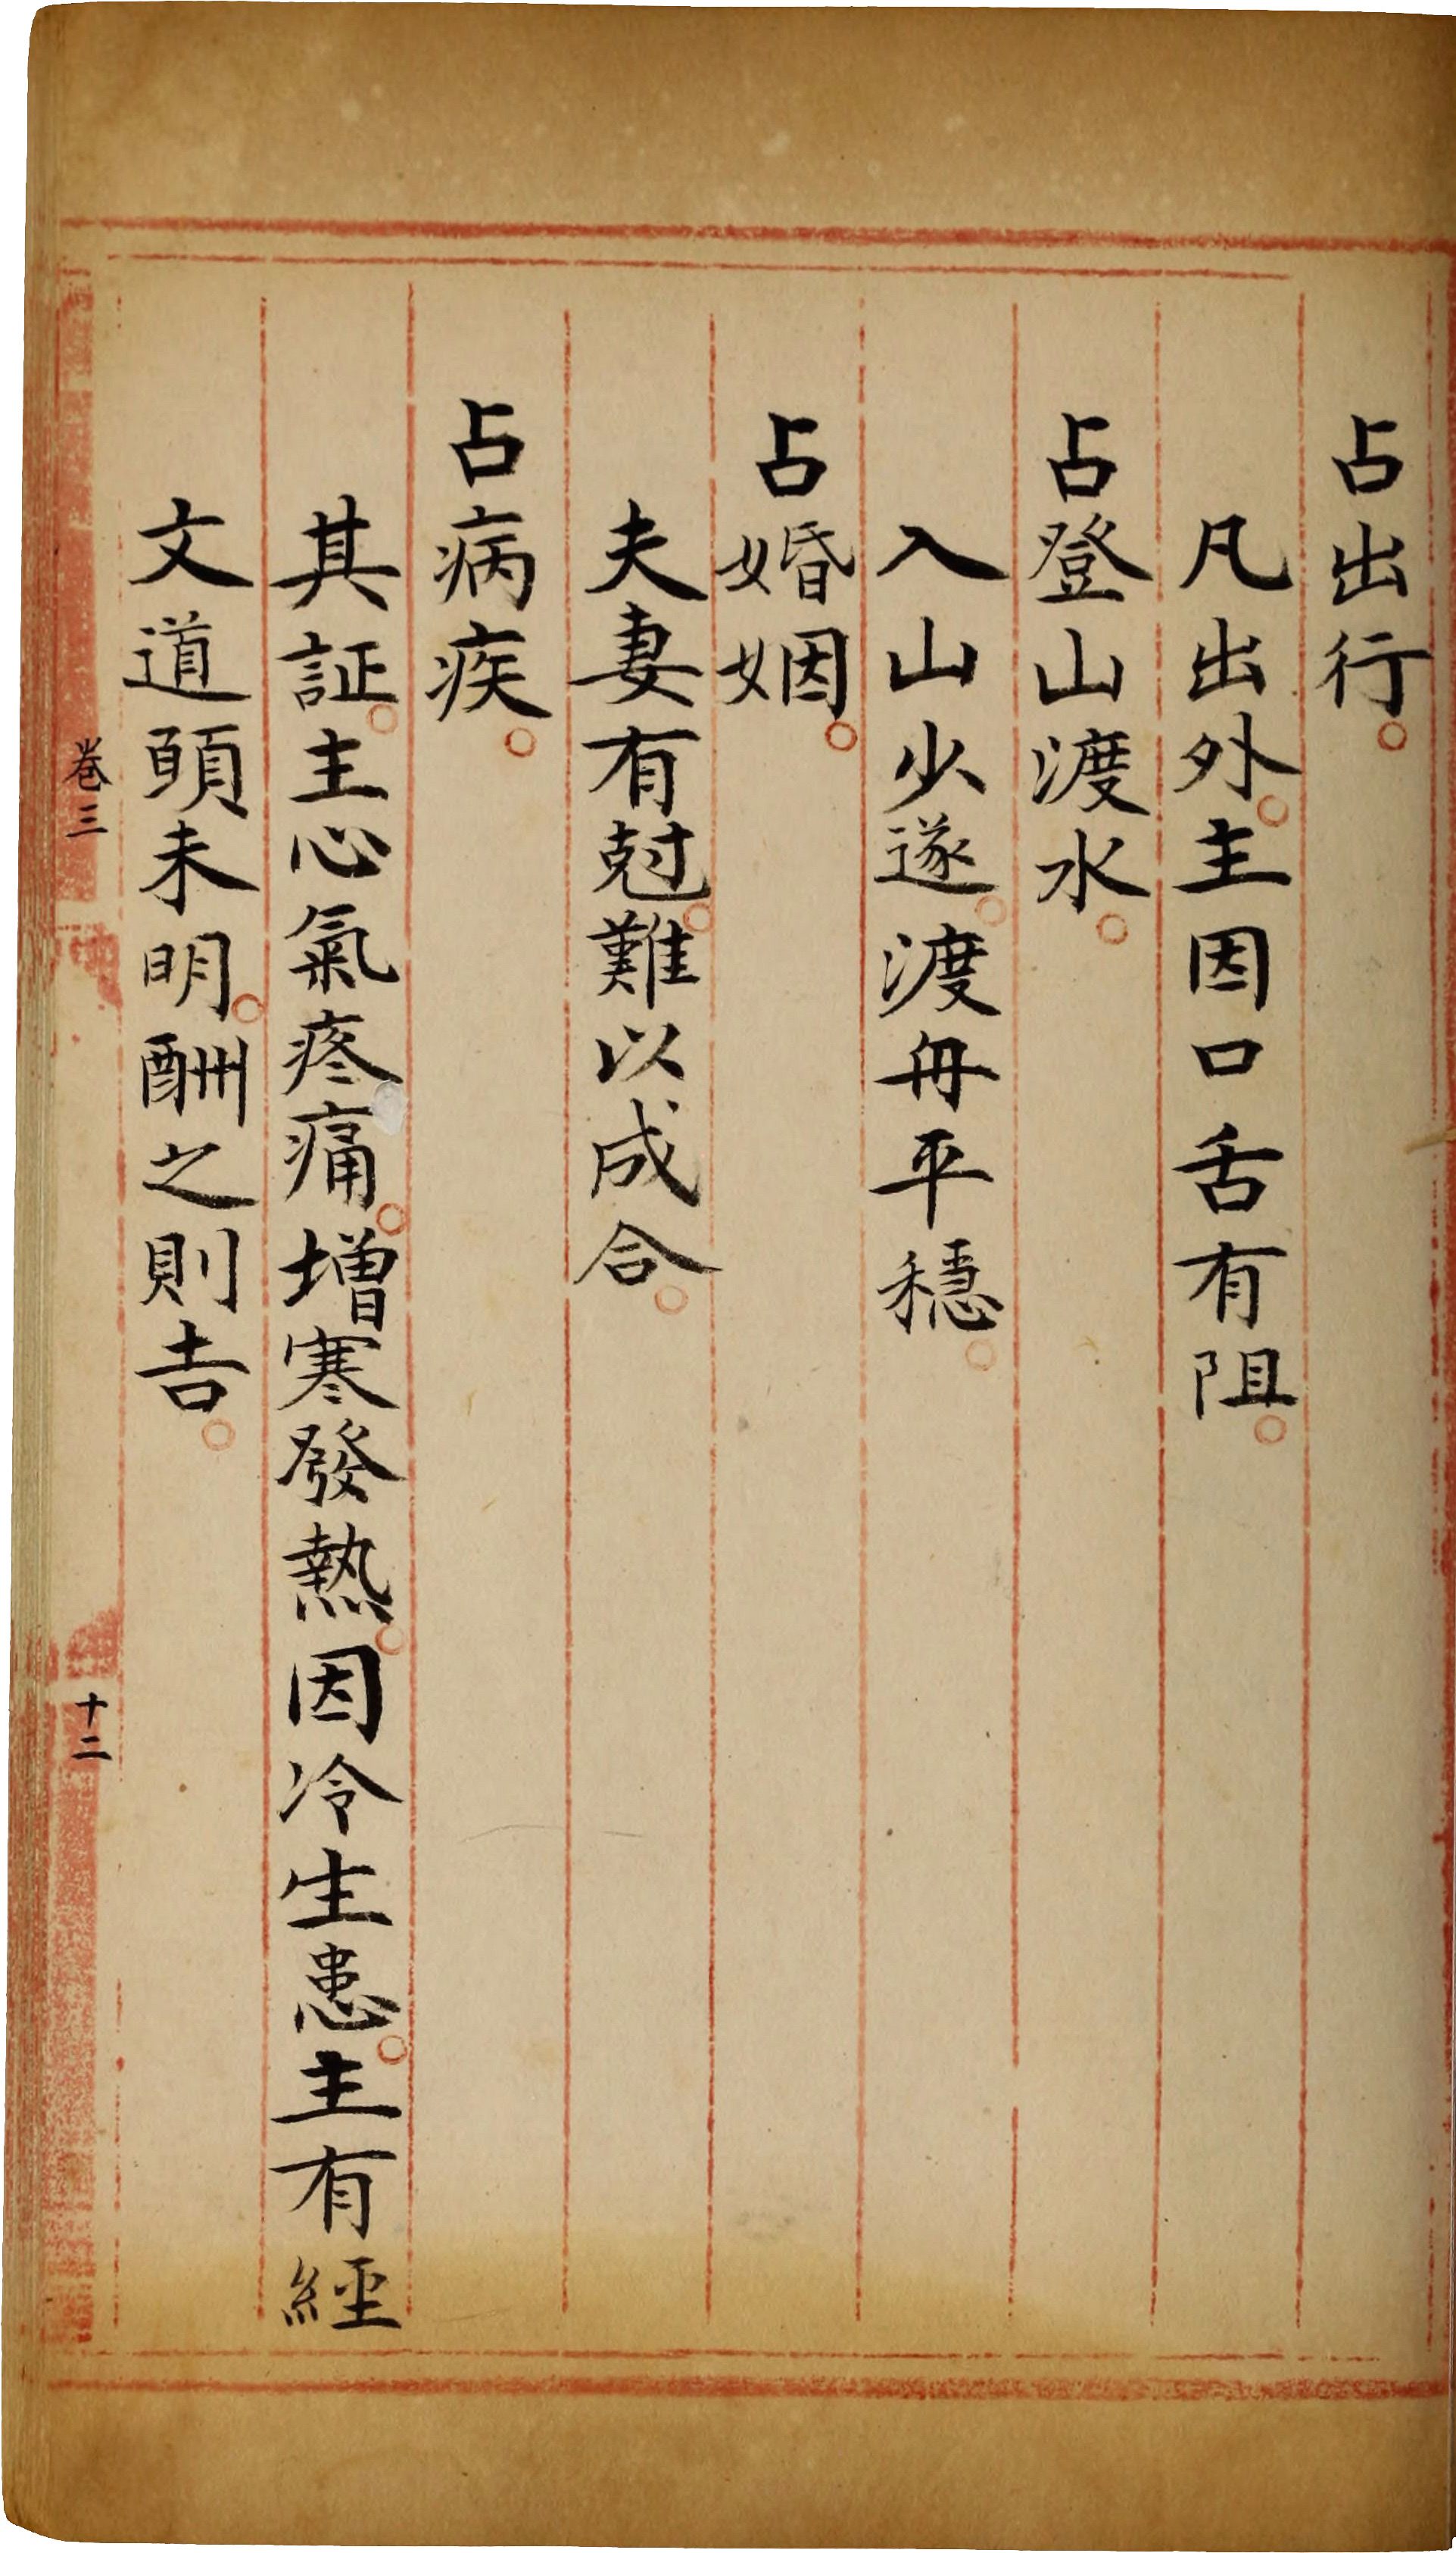 占出行。
凡出外。主因口舌有阻。
占登山渡水。
入山少遂。渡舟平穩。
占婚姻。
夫妻有尅。難以成合。
占病疾。
其証。主心氣疼痛。增寒發熱。因冷生患。主有經
文道頭未明。酬之則吉。
卷三
十二